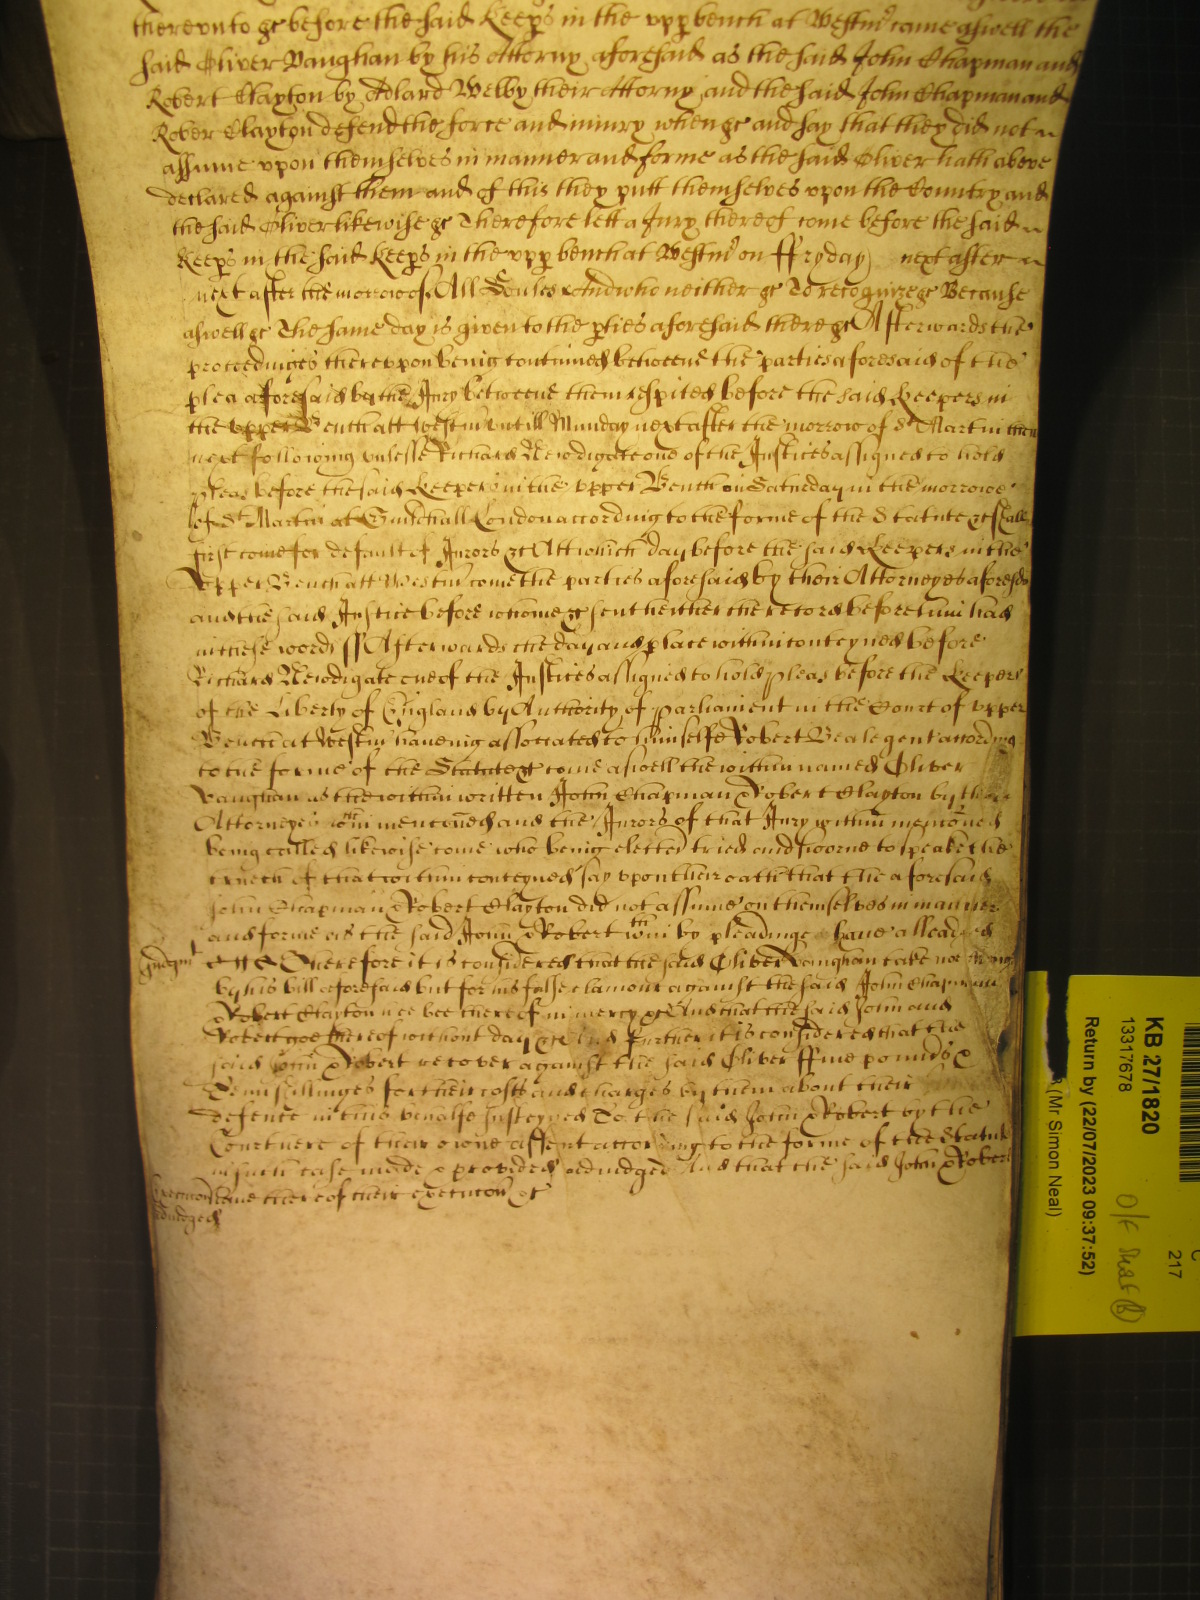 therevnto &c before the said Keeps in the vpp bench at Westmr came aswell the
said Oliver Vaughan by his Attorny aforesaid as the said John Chapman and
Robert Clayton by Adlard Welby their Attorny and the said John Chapman and
Rober Clayton defend the force and iniury when &c and say that they did not
assume vpon themselves in manner and forme as the said Oliver hath above
declared against them and of this they putt themselves vpon the Country and
the said Oliver likewise &c Therefore lett a Jury thereof come before the said
Keeps in the said Keeps in the vpp bench at Westmr on ffryday next after
next after the morrow of All Soules and who neither &c To recognize &c Because
aswell &c The same day is given to the pties aforesaid there &c Afterwards the
proceedinges therevpon being continued betweene the parties aforesaid of the
plea aforesaid by the Jury betweene them respited before the said Keepers in
the vpper Bench att Westmr vntill Munday next after the morrow of St Martin then
next following vnlesse Richard Newdigate one of the Justices assigned to hold
pleas before the said Keepers in the vpper Bench on Saturday in the morrowe
of St Martin at Guildhall London according to the forme of the Statute &c shall
first come for default of Jurors &c Att which day before the said Keepers in the
Vpper Bench att Westmr come the parties aforesaid by their Attorneyes aforesd
and the said Justice before whome &c sent hether the record before him had
in these words ss Afterwards the day and place within conteyned before
Richard Newdigate one of the Justices assigned to hold pleas before the Keepers
of the Liberty of England by Authority of parliament in the Court of vpper
Bench at Westmr haueing associated to himselfe Robert Beale gent according
to the forme of the Statute &c come aswell the within named Oliver
Vaughan as the within written John Chapman & Robert Clayton by their
Attorneyes wthin menconed and the Jurors of that Jury within menconed
being called likewise come who being elected tried and sworne to speake the
trueth of that within conteyned say vpon their oath that the aforesaid
John Chapman & Robert Clayton did not assume on themselves in manner
and forme as the said John & Robert wthin by pleadinge have alleadged
Judgmt
Therefore it is considered that the said Oliver Vaughan take nothing
by his bill aforesaid but for his false clamour against the said John Chapman
& Robert Clayton hee bee thereof in mercy &c And that the said John and
Robert goe thereof without day &c And further it is considered that the
said John & Robert recover against the said Oliver ffiue pounds &
Tenn shillinges for their costs and charges by them about their
defence in this behalfe susteyned To the said John & Robert by the
Court here of their owne assent according to the forme of the Statute
in such case made & provided adiudged And that the said John & Robert
haue thereof their execucon &c
Execucon
adiudged
KB 27/1820
13317678
Return by (22/07/2023 09:37:52)
(Mr Simon Neal)
217